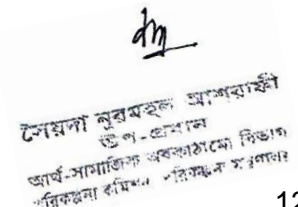 সৈয়দা নুরমহল আশরাফী
উপ-প্রধান
আর্থ-সামাজিক অবকাঠামো বিভাগ
পরিকল্পনা কমিশন, পরিকল্পনা মন্ত্রণালয়
12